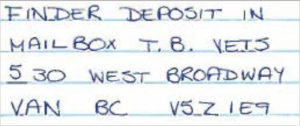 FINDER DEPOSIT IN
MAILBOX T.B. VETS
530 WEST BROADWAY
VAN BC V5Z 1E9